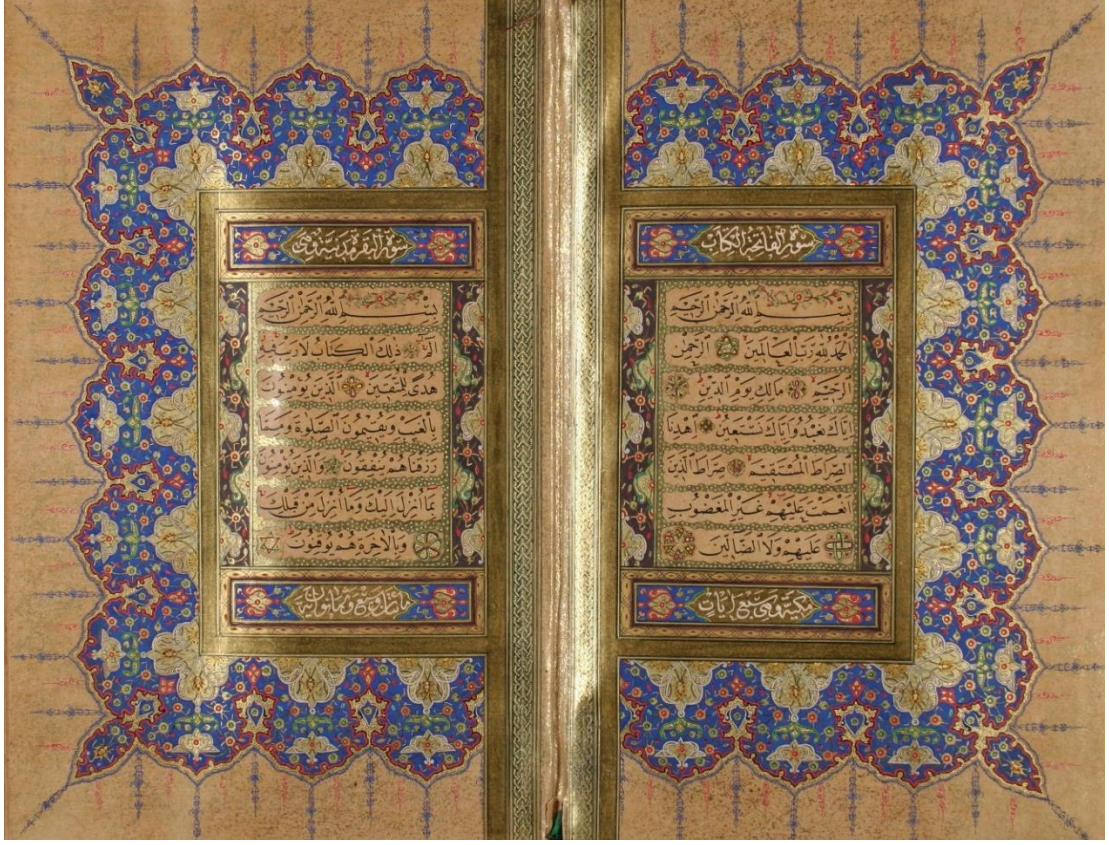 سورة الفاتحة الكتاب
بسم الله الرحمن الرحيم
الحمد لله رب العالمين الرحمن
الرحيم مالك يوم الدين
اياك نعبد واياك نستعين اهدنا
الصراط المستقيم صراط الذين
انعمت عليهم غير المغضوب
عليهم ولا الضالين
مكية وهي سبع ايات
سورة البقرة مدنية وهي
بسم الله الرحمن الرحيم
الم ذلك الكتاب لا ريب فيه
هدى للمتقين الذين يؤمنون
بالغيب ويقيمون الصلوة ومما
رزقناهم ينفقون والذين يؤمنون
بما أنزل اليك وما أنزل من قبلك
وبالاخرة هم يوقنون